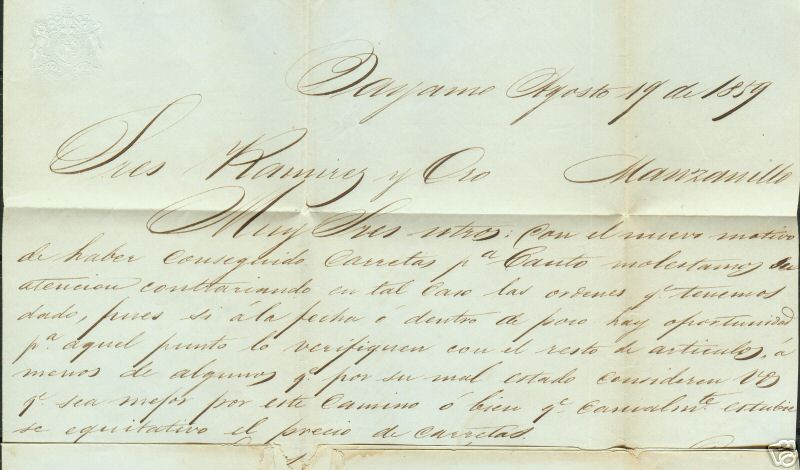 Bayamo Agosto 19 de 1859
Sres Ramirez y Oro Manzanillo
Muy Sres ntros: Con el nuevo motivo
de haber conseguido carretas pª Cauto molestamos su
atencion contrariando en tal caso las ordenes qᵉ tenemos
dado, pues si á la fecha ó dentro de poco hay oportunidad
pª aquel punto lo verifiquen con el resto de articulos, á
menos de algunos qᵉ por su mal estado consideren VS
qᵉ sea mejor por este Camino ó bien qᵉ casualmᵗᵉ estubie
se equitativo el precio de carretas.